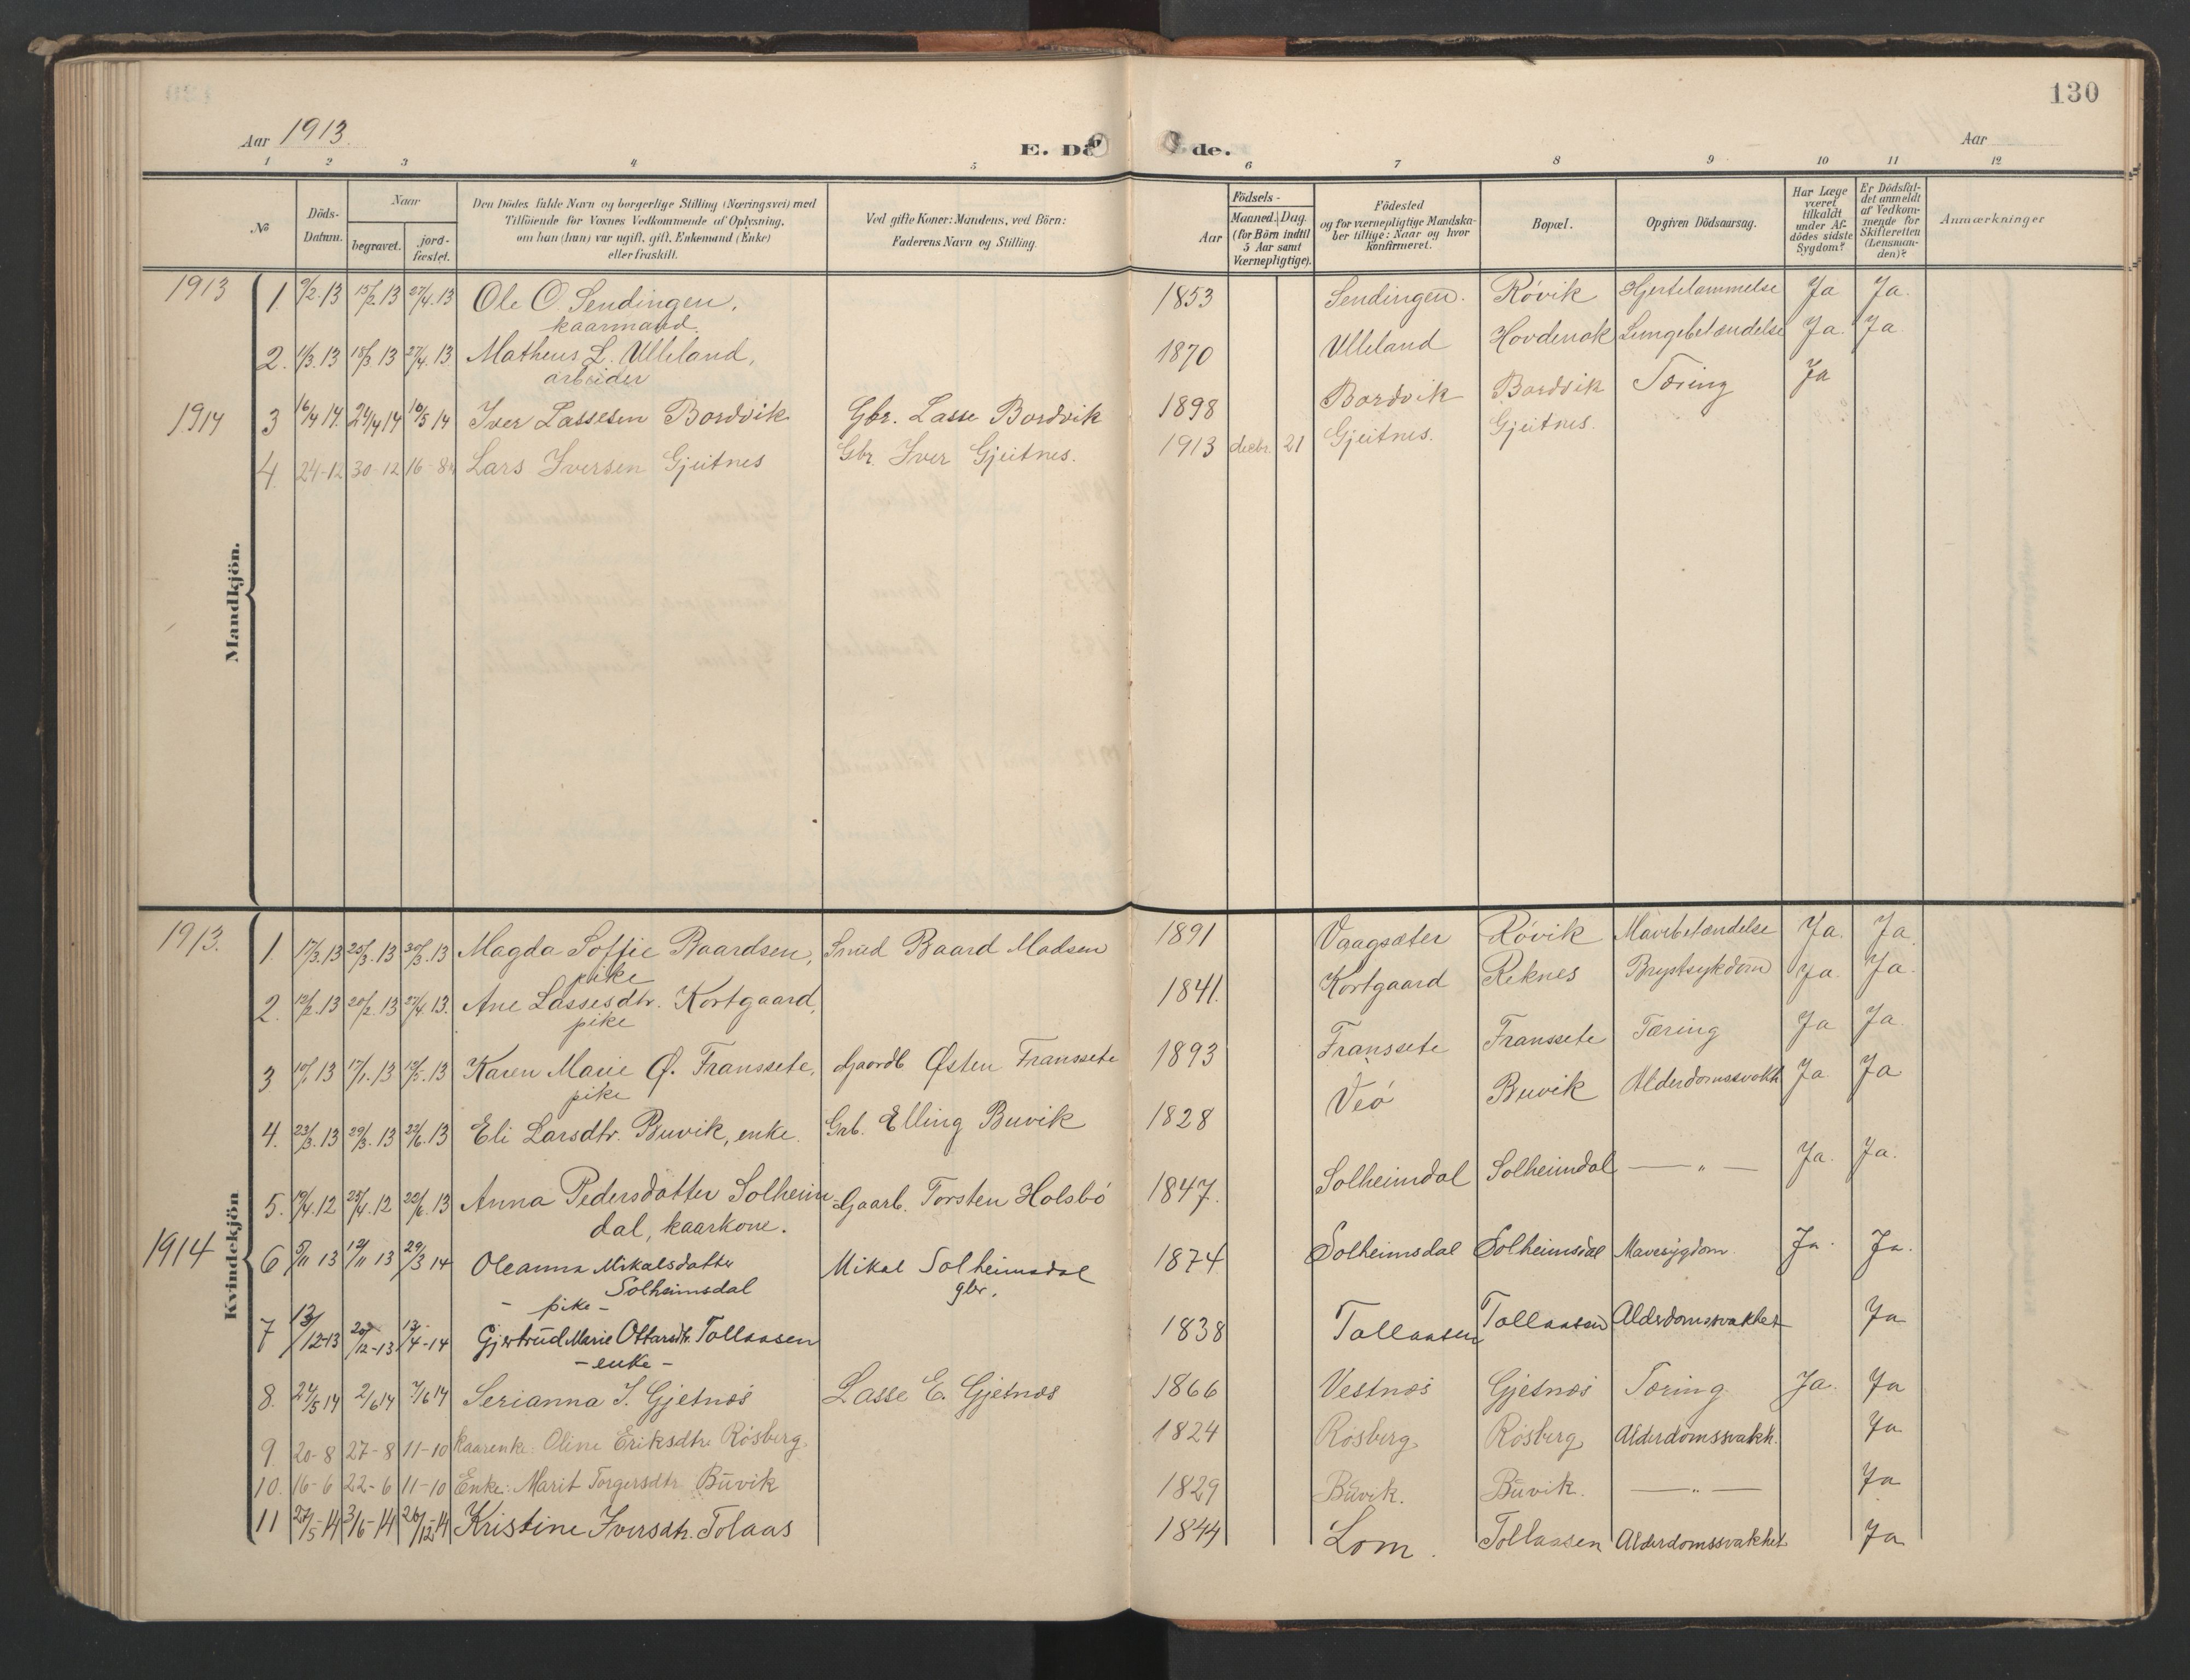 130
Aar 1913.
E. Dö de.
Aar
1 2 3 4 5 6 7 8 9 10 11 12
№
Döds-Datum.
Naar
begravet.
jord-fæstet.
Den Dödes fulde Navn og borgerlige Stilling (Næringsvei) med
Tilföiende for Voxnes Vedkommende af Oplysning,
om han (hun) var ugift, gift, Enkemand (Enke)
eller fraskilt.
Ved gifte Koner: Mandens, ved Börn:
Faderens Navn og Stilling.
Födsels-
Aar
Maaned. Dag.
(for Börn indtil
5 Aar samt
Værnepligtige).
Födested
og for værnepligtige Mandska-
ber tillige: Naar og hvor
konfirmeret.
Bopæl.
Opgiven Dödsaarsag.
Har Læge
været
tilkaldt
under Af-
dödes sidste
Sygdom?
Er Dödsfal-
det anmeldt
af Vedkom-
mende for
Skifteretten
(Lensman-
den)?
Anmærkninger
Mandkjön.
1913 1. 9/2.13 15/2.13 27/4.13 Ole O. Sendingen, 1853 Sendingen. Róvik Hjertelammelse Ja Ja.
kaarmand.
2. 11/3.13 18/3.13 27/4.13. Matheus L. Ulleland, 1870 Ulleland Hovdenak Lungebetændelse Ja. Ja
arbeider
1914 3 16/4 14. 24/4 14 10/5 14 Iver Lassesen Bordvik Gbr. Lasse Bordvik 1898 Bordvik Bordvik Tæring Ja
4. 24-12 30-12 16-8 Lars Iversen Gjeitnes Gbr. Iver Gjeitnes. 1913 decbr. 21 Gjeitnes. Gjeitnes.
Kvindekjön
1913. 1. 17/3.13 25/3.13 30/3.13 Magda Soffie Baardsen, Smed Baard Madsen 1891 Vaagsæter Róvik Mavebetændelse Ja. Ja.
pike
2. 12/2.13 20/2.13 27/4.13. Ane Lassesdtr. Kortgaard, 1841. Kortgaard Reknes Brystsykdom Ja. Ja.
pike
3 10/1 13 17/1.13 12/5.13 Karen Marie Ø. Franssete, Gaardb Østen Franssete 1893 Franssete Franssete Tæring Ja Ja.
pike
4. 23/3.13 29/3.13 22/6.13 Eli Larsdtr. Buvik, enke. Grb. Elling Buvik 1828 Veó Buvik Alderdomssvakh. Ja. Ja
5. 19/4.12 25/4.12 22/6.13 Anna Pedersdatter Solheim- Gaarb. Torsten Holsbó 1847. Solheimdal Solheimdal — " — Ja. Ja.
dal, kaarkone.
1914 6 5/11 13 12/11 13 29/3 14 Oleanna Mikalsdatter Mikal Solheimsdal 1874 Solheimsdal Solheimsdal Mavesygdom. Ja. Ja.
Solheimsdal gbr.
- pike -
7 13/12-13 20/12-13 13/4-14 Gjertrud Marie Ottarsdtr. Tollaasen 1838 Tollaasen Tollaasen Alderdomssvakhet Ja
- enke -
8. 27/5 14 2/6 14 7/6 14 Serianna I. Gjetnes Lasse E. Gjetnes 1866 Vestnes Gjetnes Tæring. Ja. Ja
9. 20-8 27-8 11-10 Kaarenke: Oline Eriksdtr Rósberg 1824 Rósberg Rósberg Alderdomssvakh. Ja
10. 16-6 22-6 11-10 Enke: Marit Torgersdtr Buvik 1829 Buvik. Buvik. — " — Ja
11 27/5-14 3/6-14 26/12-14 Kristine Iversdtr. Tolaas 1844 Lom. Tollaasen Alderdomssvakhet Ja